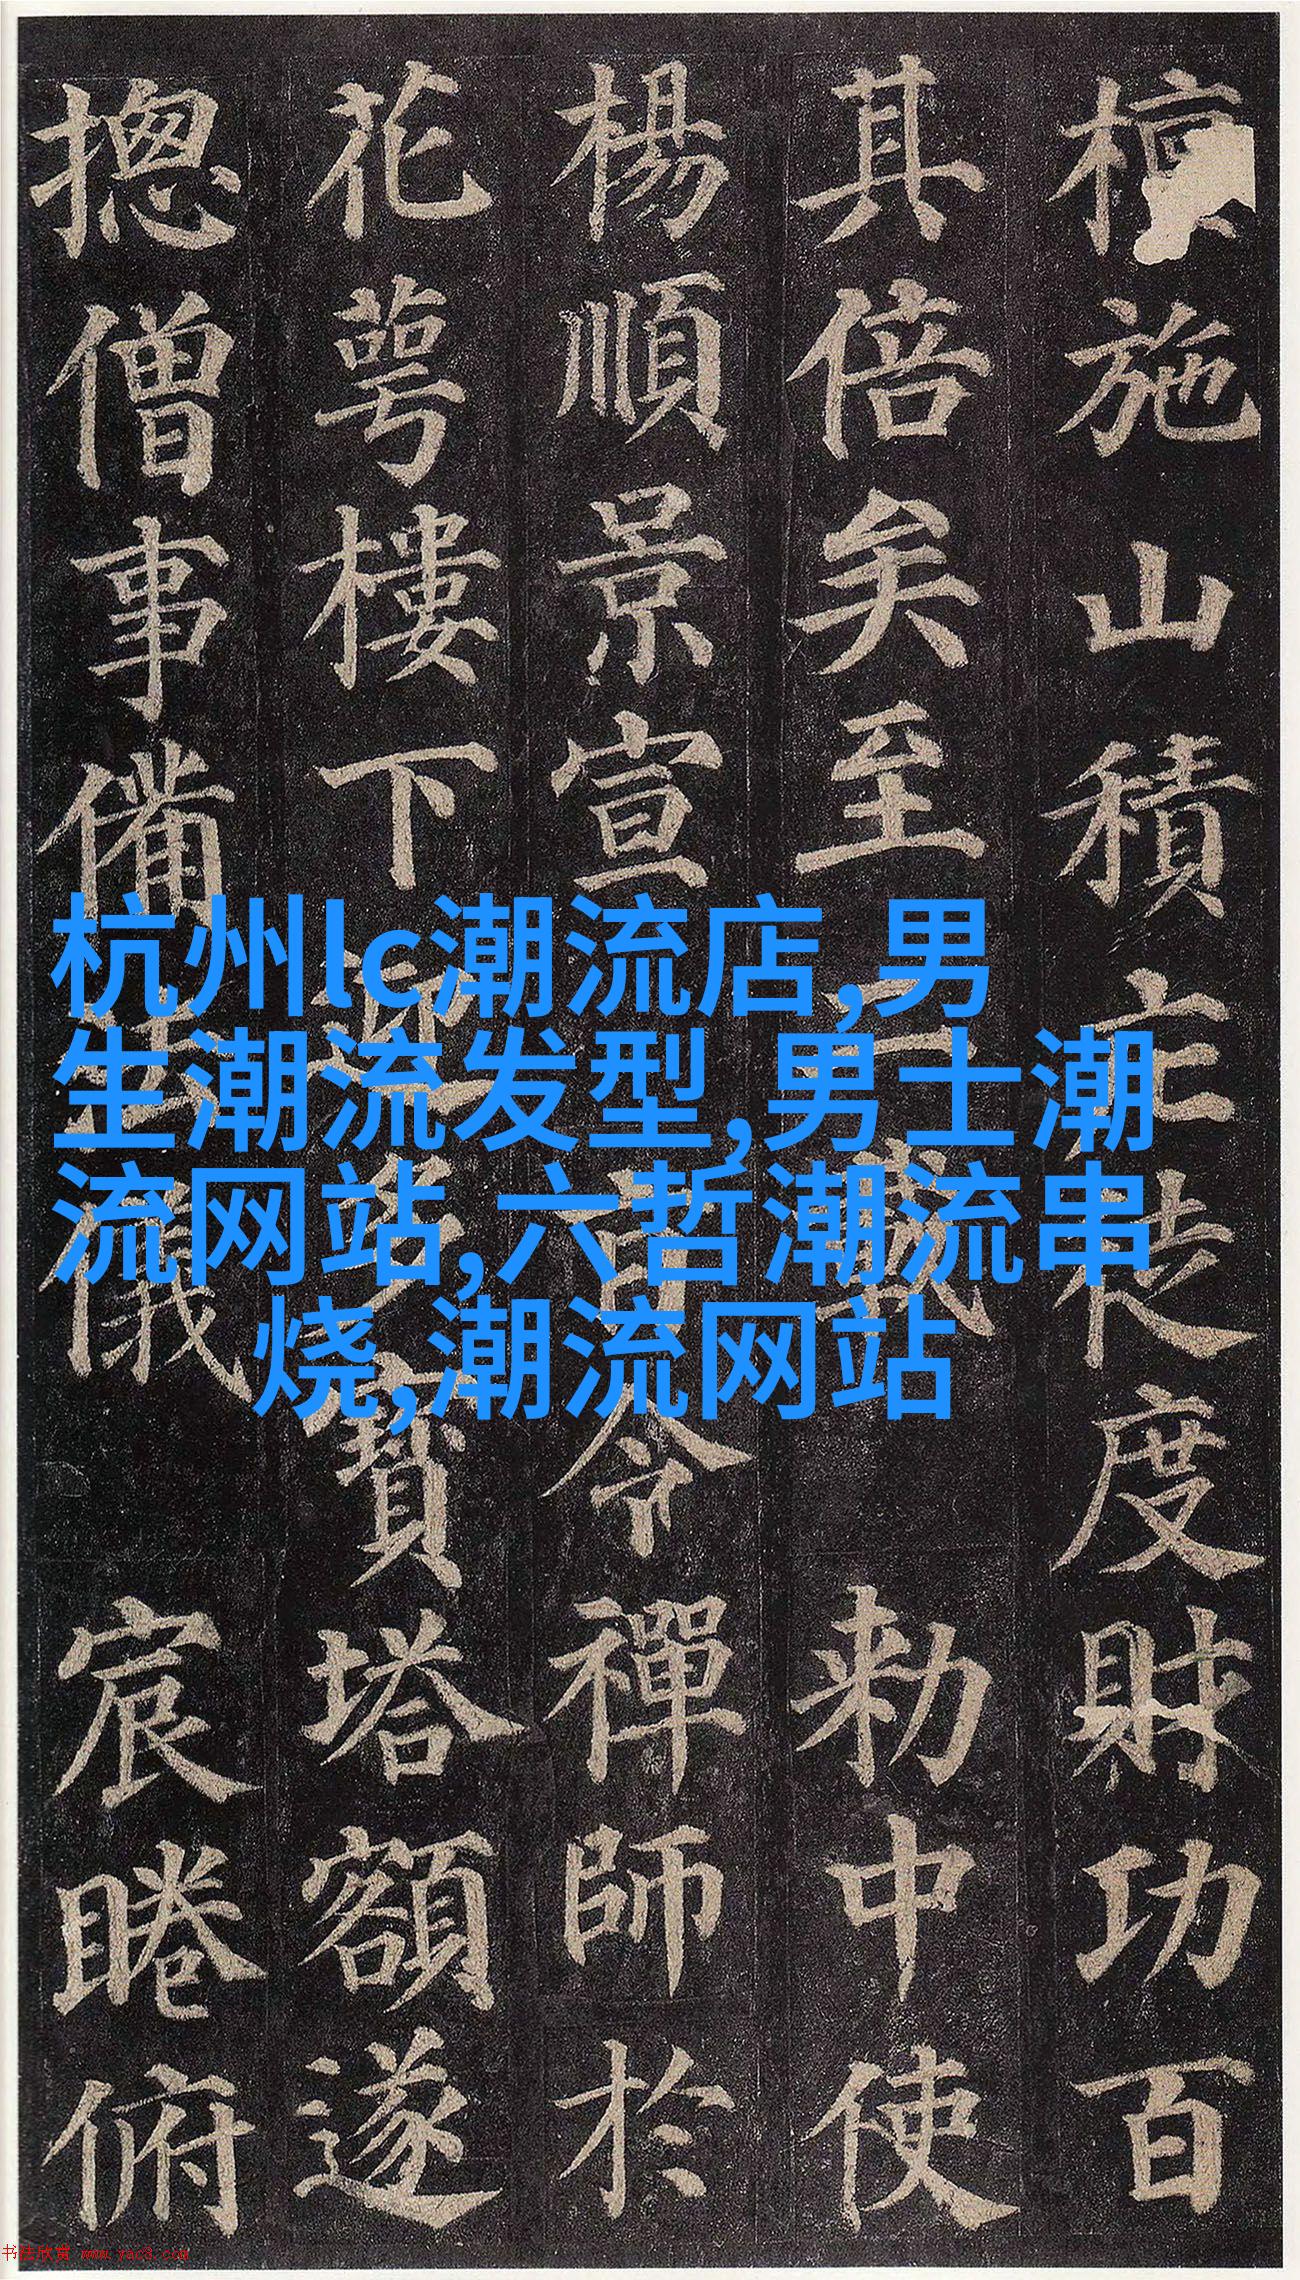 施山積庀徒度財功百
其倍矣至二載勑中使
楊順景宣旨令禪師於
花萼樓下迎多寶塔額遂
摠僧事備法儀宸睠俯
杭州lc潮流店,男
生潮流发型,男士潮
流网站,六哲潮流串
烧,潮流网站
书法欣赏 www.yac3.com